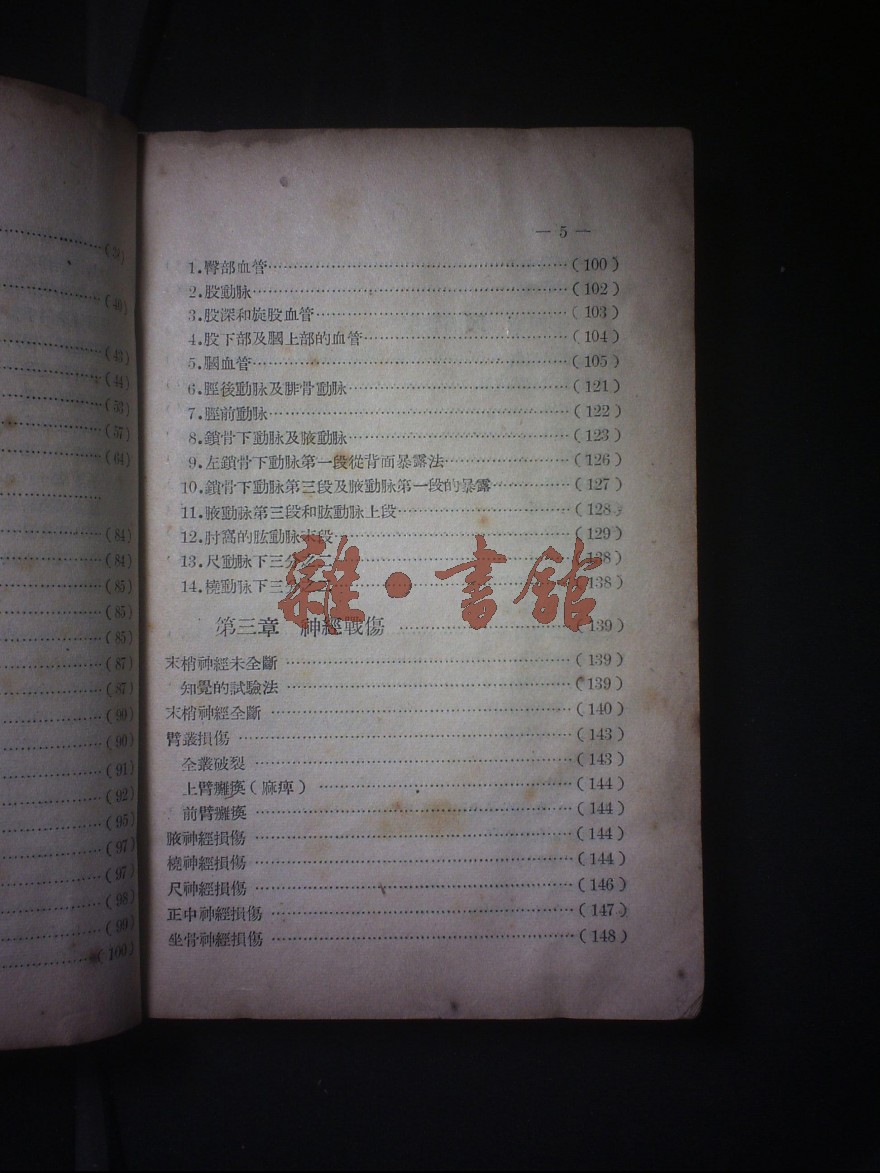 (40)
(43)
(44)
(53)
(57)
(64)
(84)
(84)
(85)
(85)
(85)
(87)
(87)
(90)
(90)
(91)
(92)
(95)
(97)
(97)
(98)
(99)
(100)
— 5 —
1.臀部血管……(100)
2.股動脉……(102)
3.股深和旋股血管……(103)
4.股下部及膕上部的血管……(104)
5.膕血管……(105)
6.脛後動脉及腓骨動脉……(121)
7.脛前動脉……(122)
8.鎖骨下動脉及腋動脉……(123)
9.左鎖骨下動脉第一段從背面暴露法……(126)
10.鎖骨下動脉第三段及腋動脉第一段的暴露……(127)
11.腋動脉第三段和肱動脉上段……(128)
12.肘窩的肱動脉末段……(129)
13.尺動脉下三分之一……(138)
14.橈動脉下三分……(138)
第三章 神經戰傷……(139)
末梢神經未全斷……(139)
知覺的試驗法……(139)
末梢神經全斷……(140)
臂叢損傷……(143)
全叢破裂……(143)
上臂癱瘓(麻痺)……(144)
前臂癱瘓……(144)
腋神經損傷……(144)
橈神經損傷……(144)
尺神經損傷……(146)
正中神經損傷……(147)
坐骨神經損傷……(148)
雜·書館